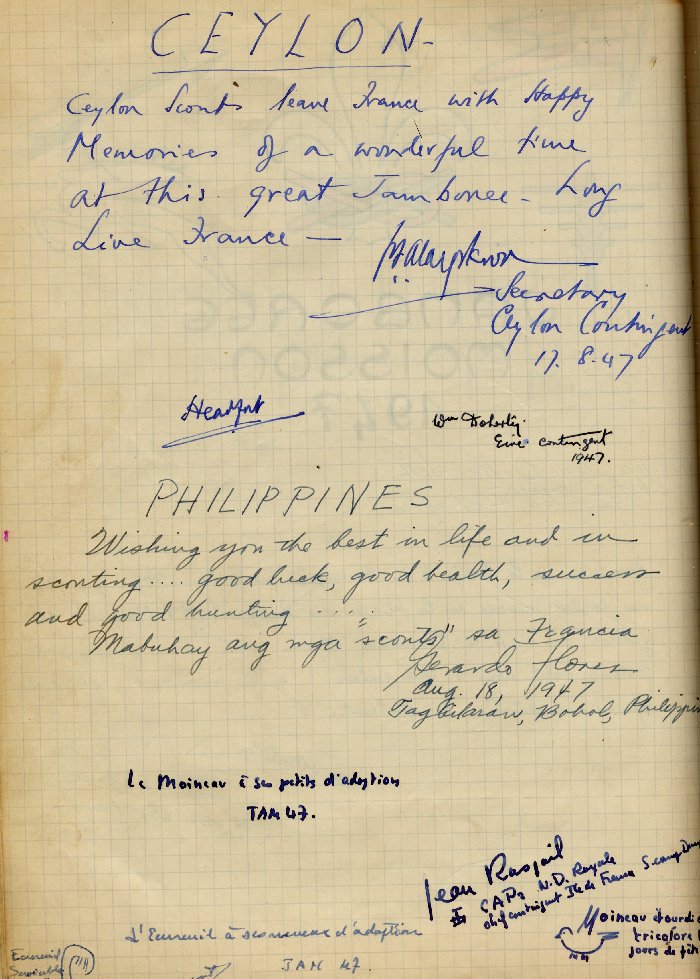 CEYLON-
Ceylon Scouts leave France with Happy
Memories of a wonderful time
at this great Jamboree - Long
Live France —
Secretary
Ceylon Contingent
17.8.47
Headfort
Wm Doherty.
Eire contingent
1947.
PHILIPPINES
Wishing you the best in life and in
scouting .... good luck, good health, success
and good hunting ....
Mabuhay ang mga "scouts" sa Francia
Gerardo Flores
Aug. 18, 1947
Tagbilaran, Bohol, Philippin
Le Moineau à ses petits d'adoption
JAM 47.
Jean Raspail
CAP N.D. Royale
chef contingent Ile de France
Moineau étourdi
tricolore
jours de fêt
L'Ecureuil à ses neveux d'adoption
JAM 47.
Ecureuil
Serviable